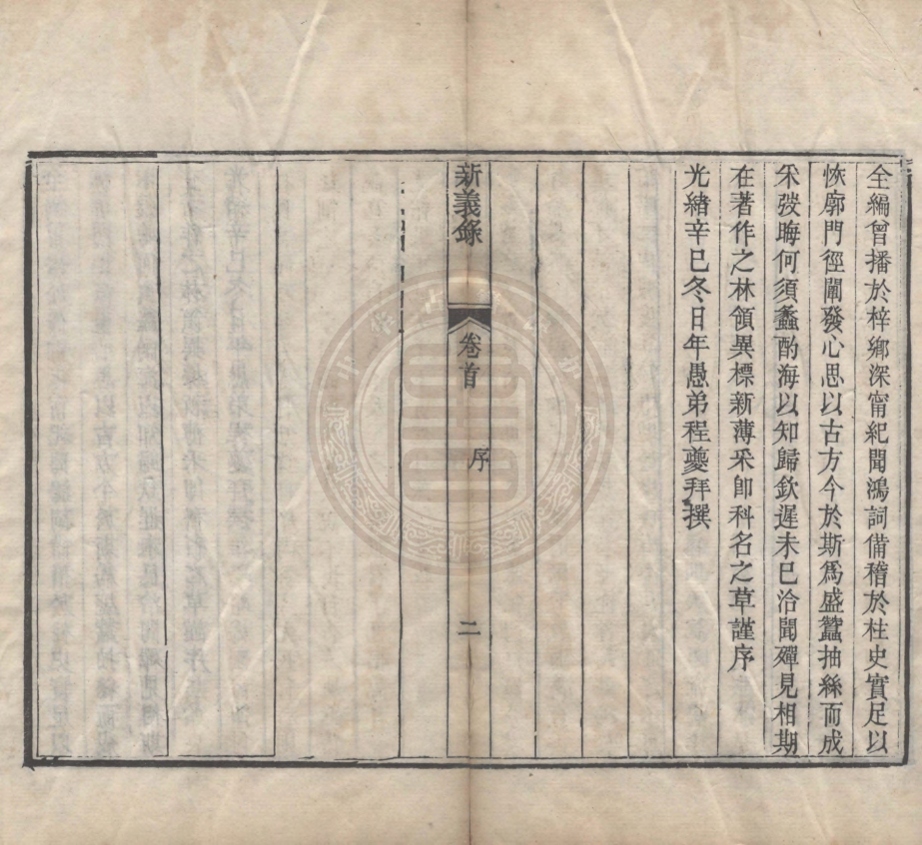 全編曾播於梓鄉深甯紀聞鴻詞備稽於柱史實足以
恢廓門徑闡發心思以古方今於斯爲盛蠶抽絲而成
釆發晦何須蠡酌海以知歸欽遲未已洽聞殫見相期
在著作之林領異標新薄采卽科名之草謹序
光緒辛巳冬日年愚弟程夔拜撰
新義錄
卷首
序
二